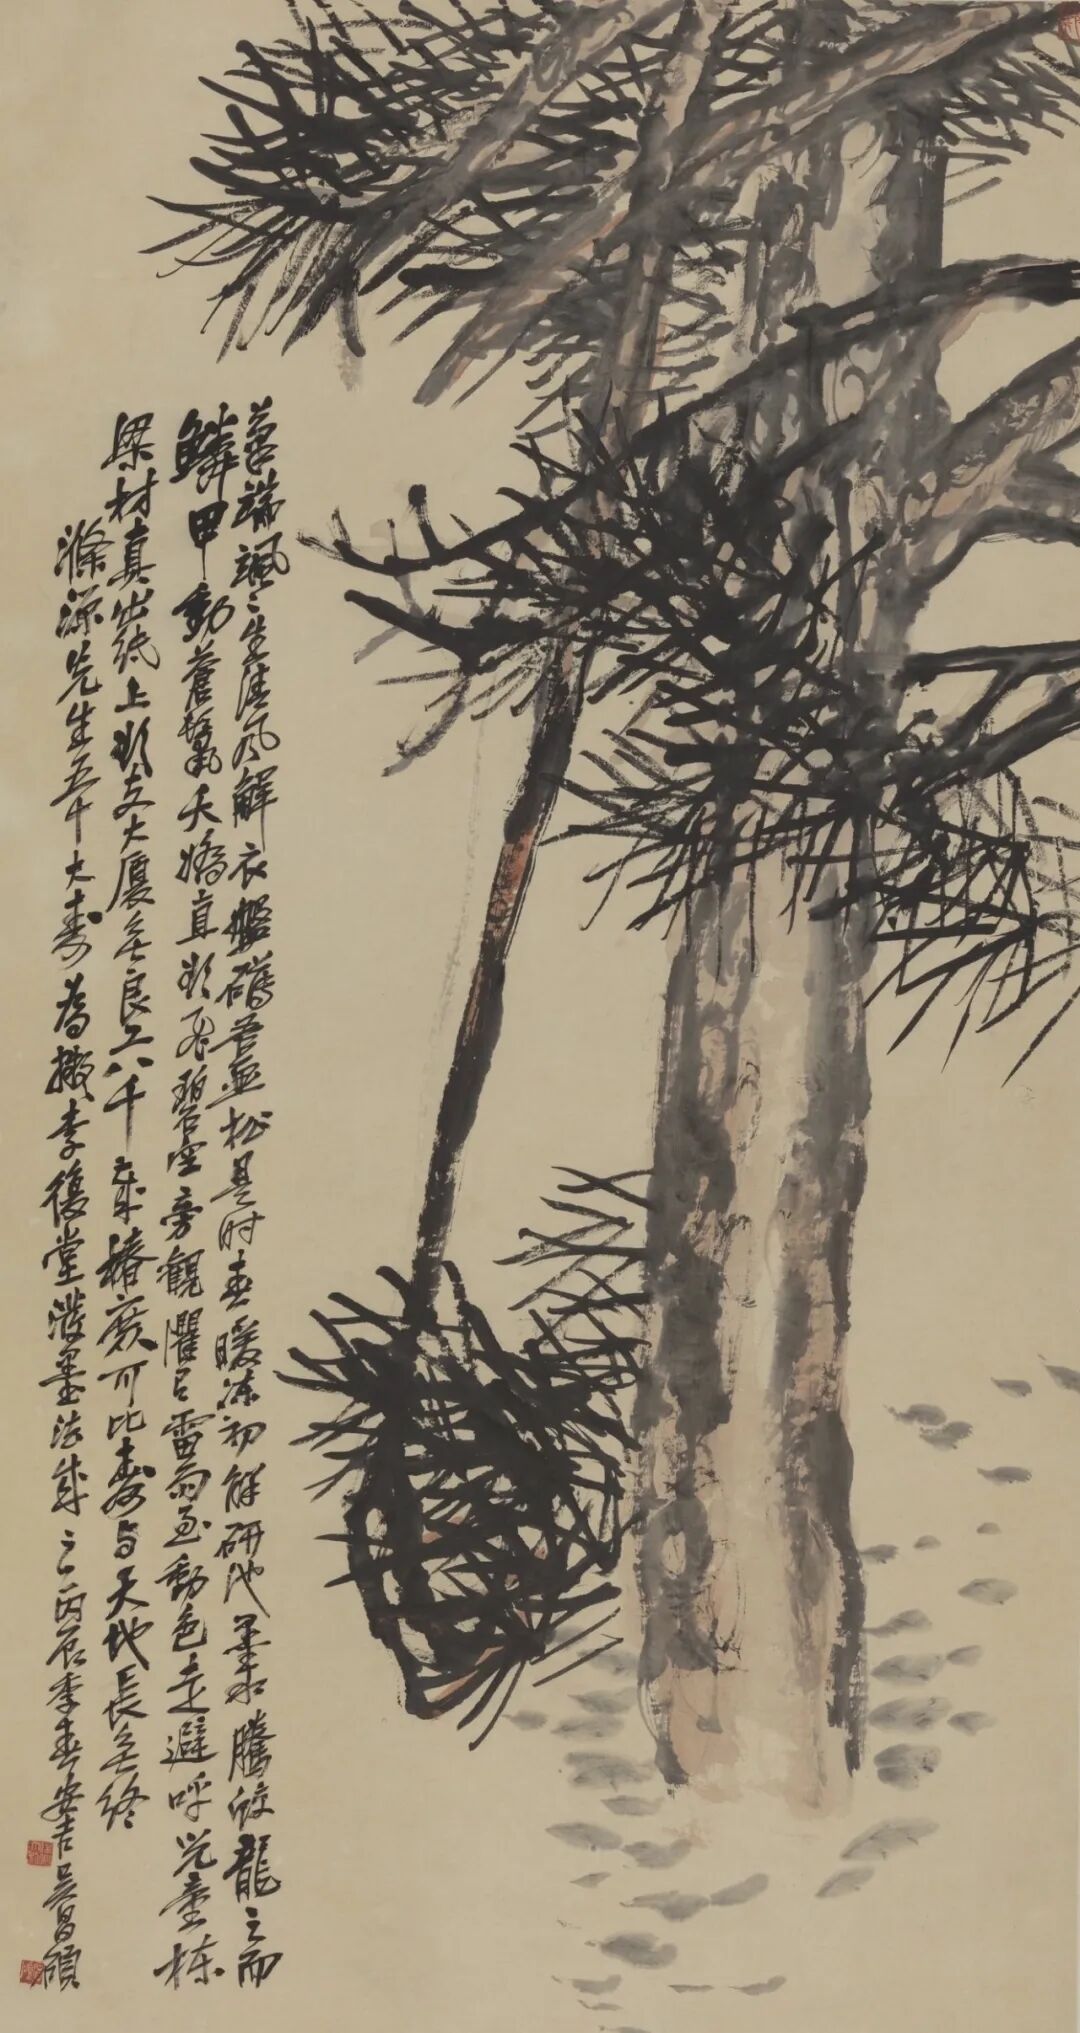 筆端颯〻生清風解衣盤礴吾畫松是時春暖凍初解研池墨水騰蛟龍之而
鱗甲動蒼鬣夭矯直欲飛碧空旁觀懼有雷雨至動色走避呼兒童棟
梁材真出紙上欲支大廈無良工八千歲椿庶可比壽與天地長無終
滌源先生五十大壽為擬李復堂潑墨法成之丙辰季春安吉吳昌碩